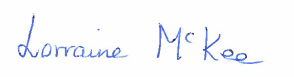 Lorraine McKee